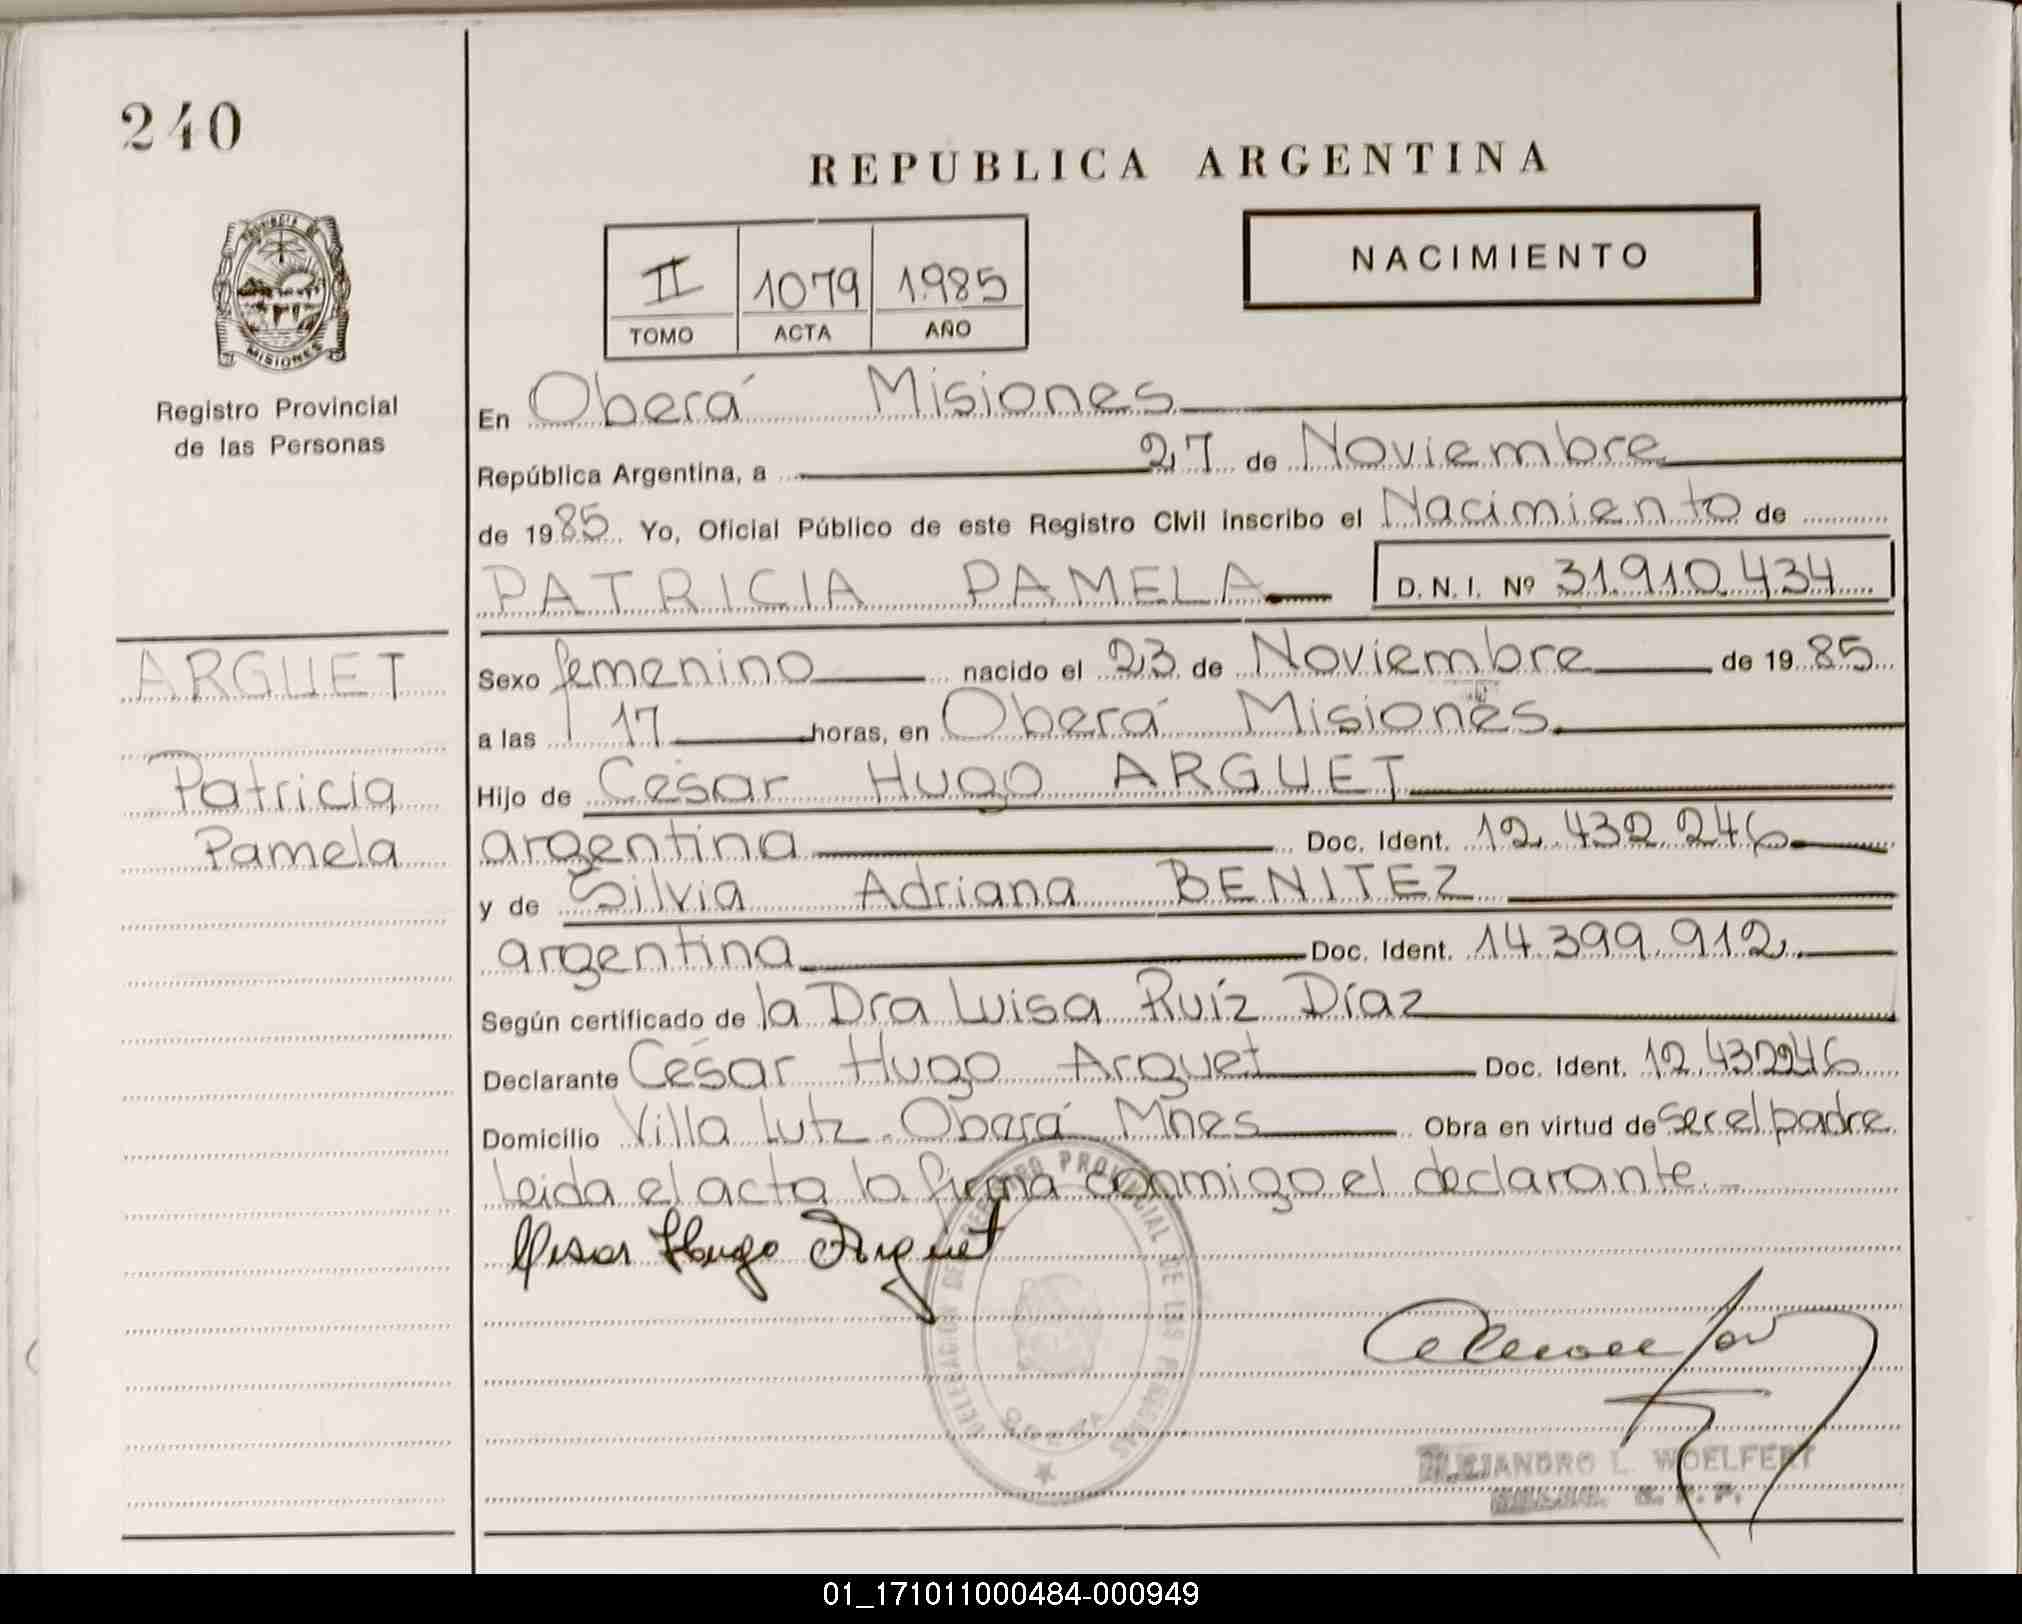 240
REPUBLICA ARGENTINA
PROVINCIA DE
MISIONES
NACIMIENTO
II 1079 1.985
TOMO ACTA AÑO
Registro Provincial
de las Personas
En Oberá Misiones
República Argentina, a 27 de Noviembre
de 1985 Yo, Oficial Público de este Registro Civil inscribo el Nacimiento de
PATRICIA PAMELA D.N.I. Nº 31.910.434
ARGUET
Patricia
Pamela
Sexo femenino nacido el 23 de Noviembre de 1985
a las 17 horas, en Oberá Misiones
Hijo de César Hugo ARGUET
argentina Doc. Ident. 12.432.246
y de Silvia Adriana BENITEZ
argentina Doc. Ident. 14.399.912
Según certificado de la Dra Luisa Ruíz Díaz
Declarante César Hugo Arguet Doc. Ident. 12.432246
Domicilio Villa Lutz. Oberá Mnes Obra en virtud de ser el padre
leida el acta la firma conmigo el declarante.
Cesar Hugo Arguet
DELEGACION DEL REGISTRO PROVINCIAL DE LAS PERSONAS
ALEJANDRO L. WOELFERT
01_171011000484-000949